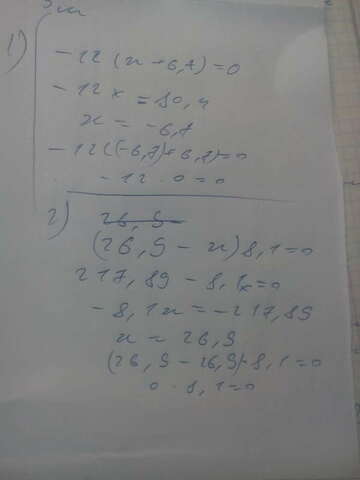 1)
-12 (x + 6,7) = 0
-12x = 80,4
x = -6,7
-12((-6,7)+6,7)=0
-12 · 0 = 0
2) 26,9 -
(26,9 - x) 8,1 = 0
217,89 - 8,1x = 0
-8,1x = -217,89
x = 26,9
(26,9 - 26,9) · 8,1 = 0
0 · 8,1 = 0